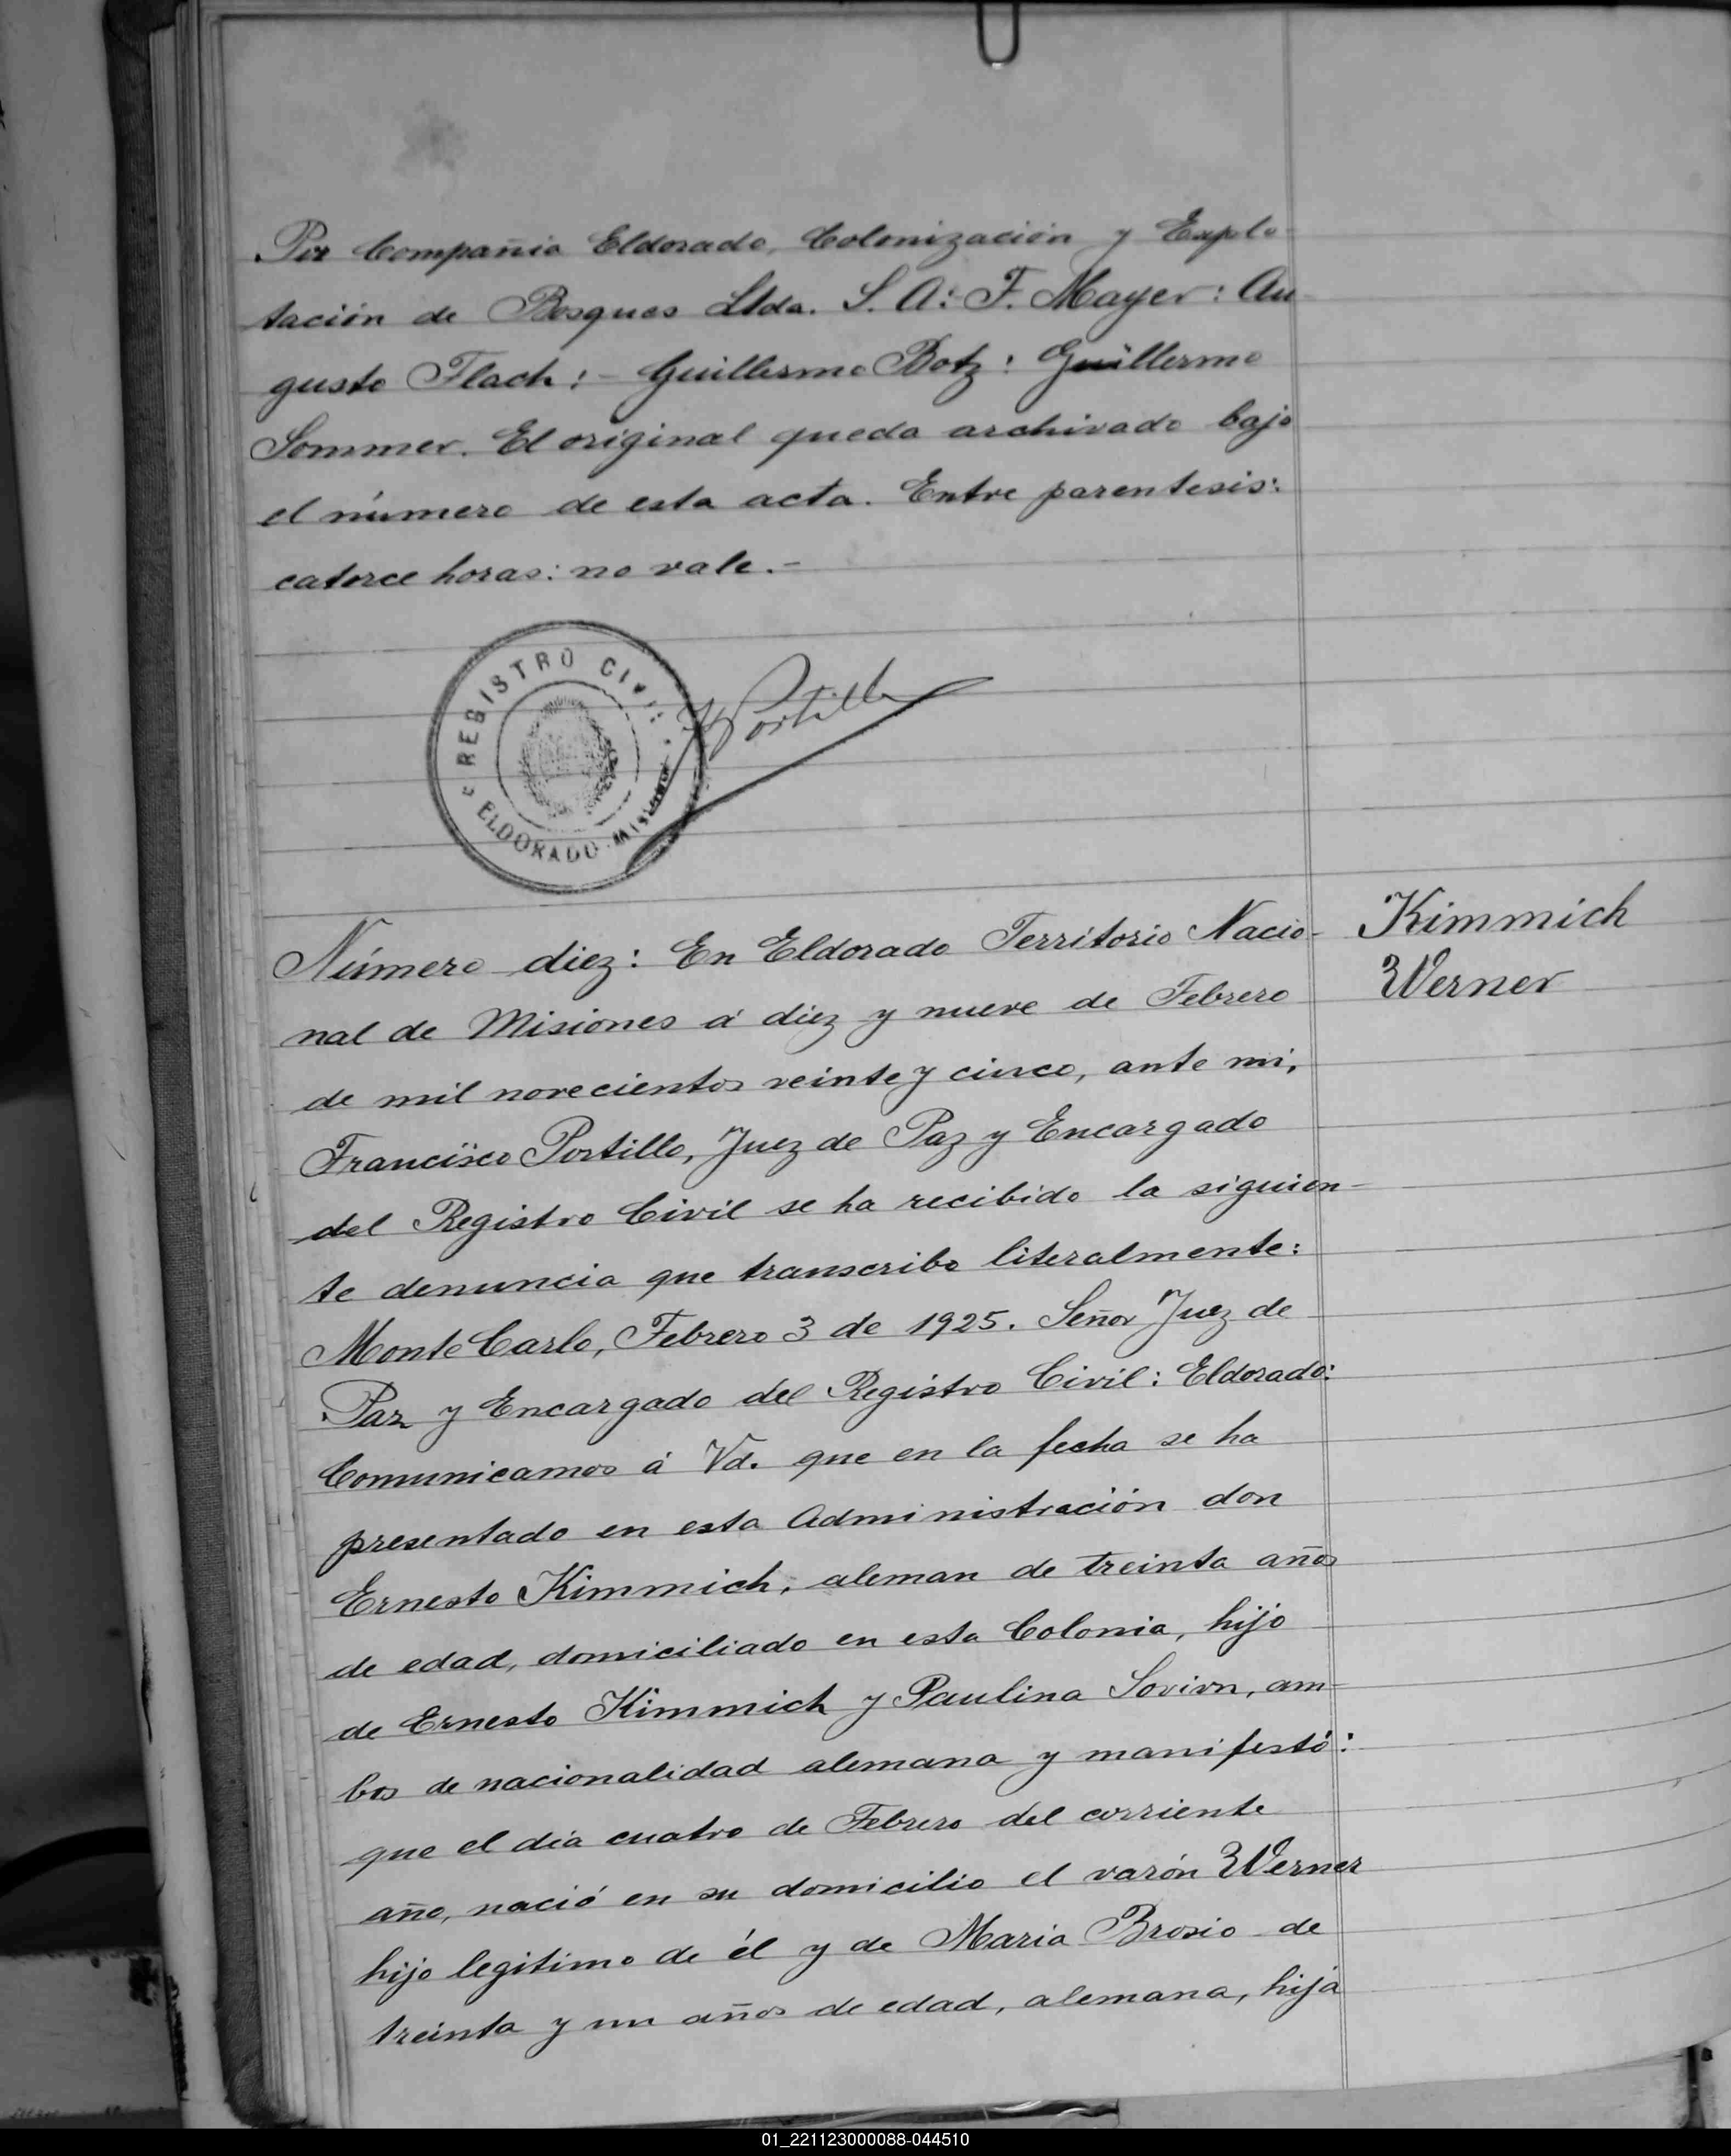 Por Compañia Eldorado, Colonización y Explo-
tación de Bosques Ltda. S. A: F. Mayer: Au-
gusto Flach:- Guillermo Botz: Guillermo
Sommer. El original queda archivado bajo
el número de esta acta. Entre parentesis:
catorce horas: no vale.-
REGISTRO CIVIL
ELDORADO MISIONES
Portillo
Número diez: En Eldorado Territorio Nacio-
Kimmich
Werner
nal de Misiones á diez y nueve de Febrero
de mil novecientos veinte y cinco, ante mi,
Francisco Portillo, Juez de Paz y Encargado
del Registro Civil se ha recibido la siguien-
te denuncia que transcribo literalmente:
Monte Carlo, Febrero 3 de 1925. Señor Juez de
Paz y Encargado del Registro Civil: Eldorado:
Comunicamos á Vd. que en la fecha se ha
presentado en esta Administración don
Ernesto Kimmich, aleman de treinta años
de edad, domiciliado en esta Colonia, hijo
de Ernesto Kimmich y Paulina, am-
bos de nacionalidad alemana y manifestó:
que el día cuatro de Febrero del corriente
año, nació en su domicilio el varón Werner
hijo legitimo de él y de Maria Brosio de
treinta y un años de edad, alemana, hija
01_221123000088-044510